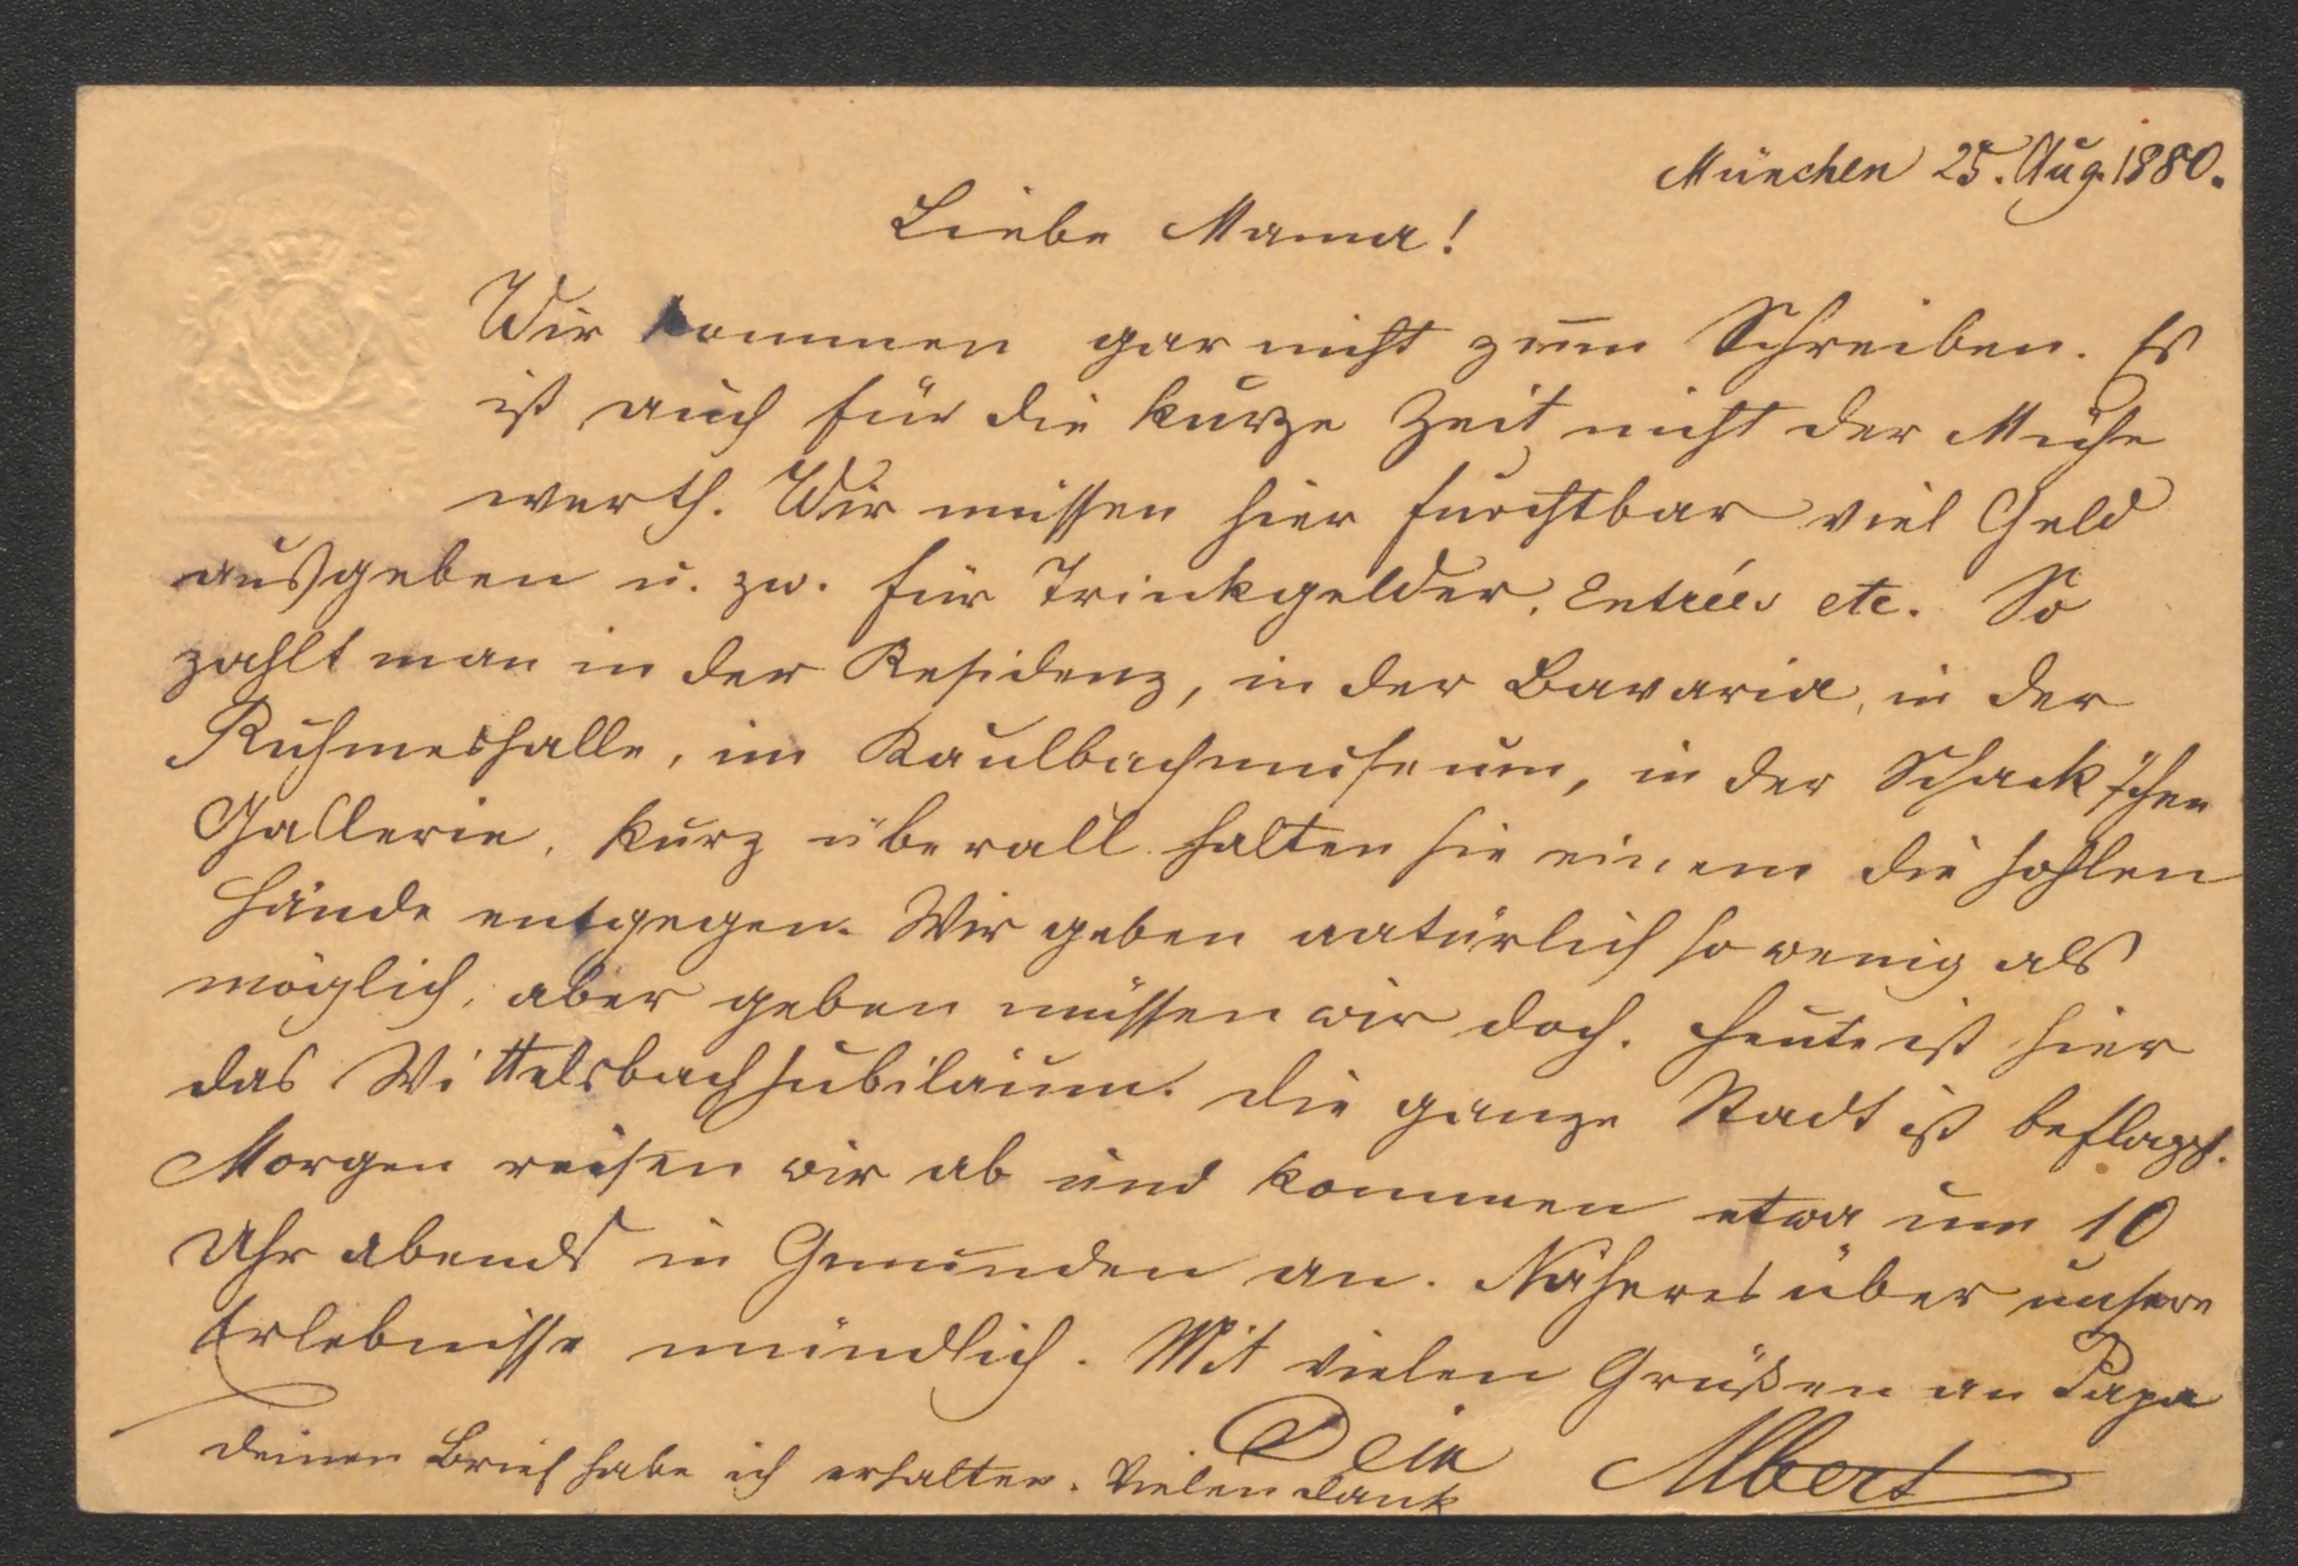 München 25. Aug. 1880.
Liebe Mama!
Wir kommen gar nicht zum Schreiben. Es
ist auch für die kurze Zeit nicht der Mühe
werth. Wir müssen hier furchtbar viel Geld
ausgeben u. zw. für Trinkgelder, Entrées etc. So
zahlt man in der Residenz, in der Bavaria, in der
Ruhmeshalle, im Kaulbachmuseum, in der Schack'schen
Gallerie, kurz überall halten sie einem die hohlen
Hände entgegen. Wir geben natürlich so wenig als
möglich, aber geben müssen wir doch. Heute ist hier
das Wittelsbachjubiläum. Die ganze Stadt ist beflaggt.
Morgen reisen wir ab und kommen etwa um 10
Uhr abends in Gmunden an. Näheres über unsere
Erlebnisse mündlich. Mit vielen Grüßen an Papa
Dein Albert
Deinen Brief habe ich erhalten. Vielen Dank